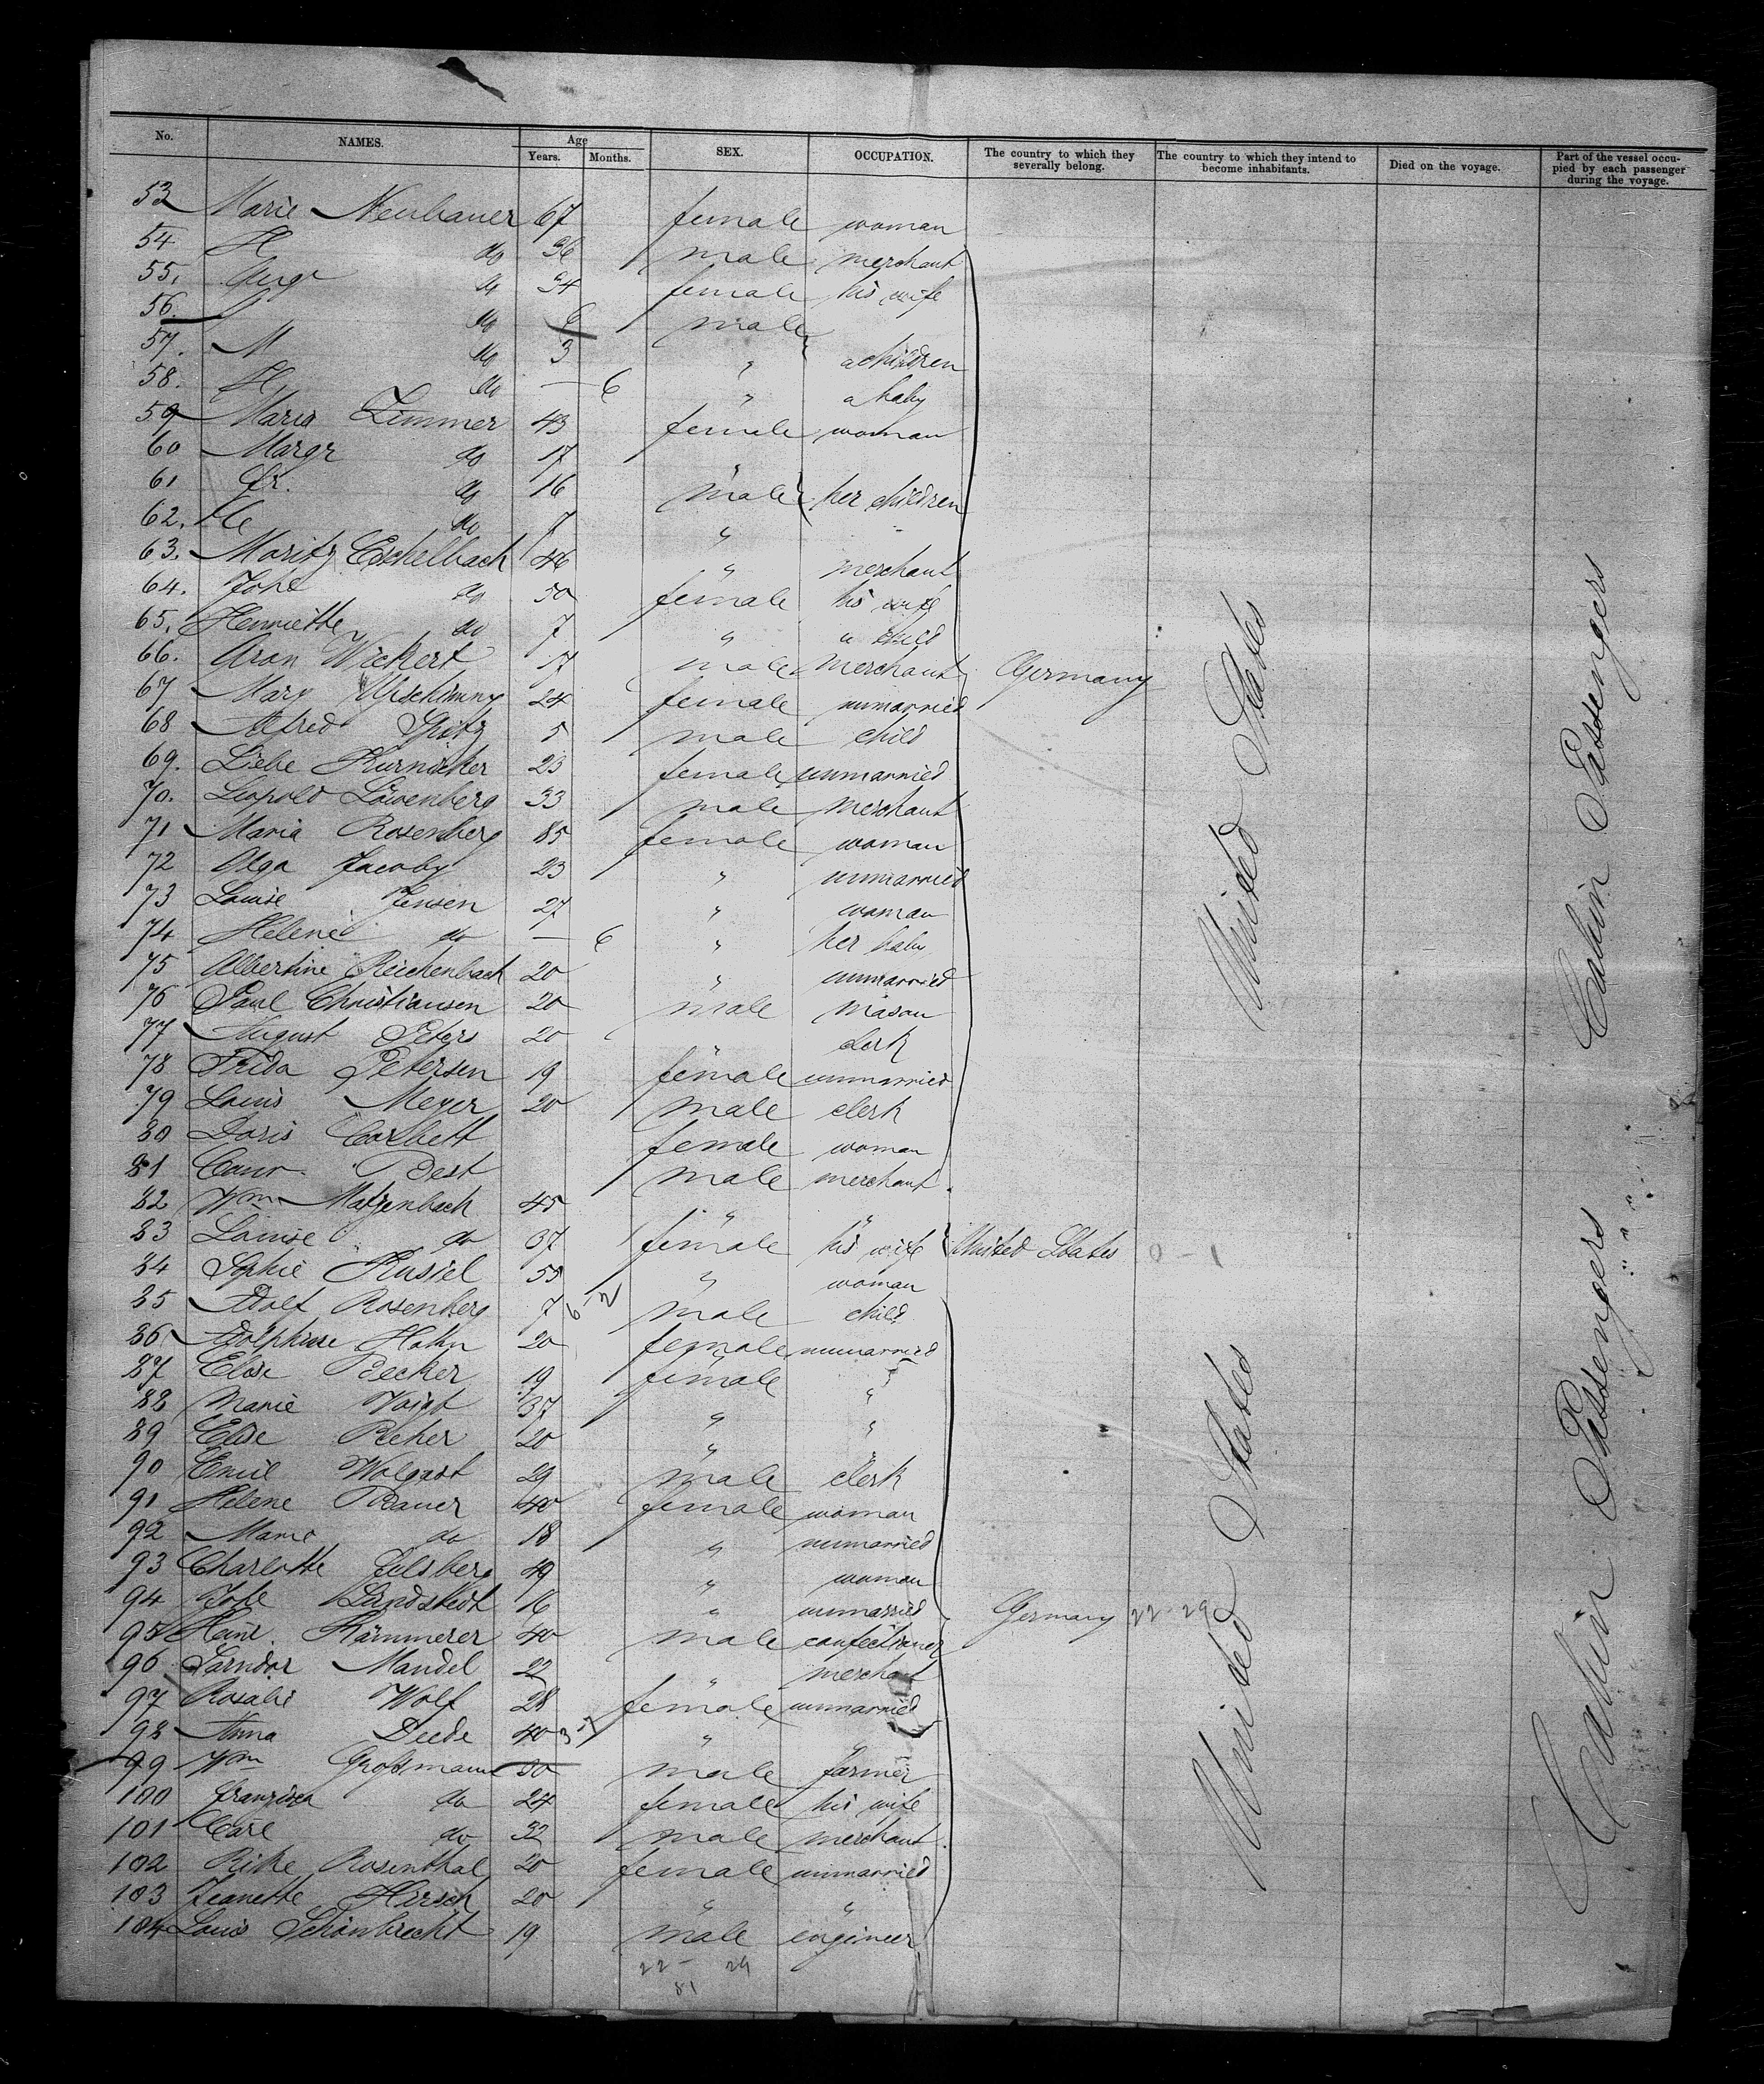 No. NAMES. Age Years. Months. SEX. OCCUPATION. The country to which they severally belong. The country to which they intend to become inhabitants. Died on the voyage. Part of the vessel occupied by each passenger during the voyage.
53 Marie Neubauer 67 female woman
54 H do 36 male merchant
55. do 34 female his wife
56. do 6 male
57. M do 3 " children
58. H. do — 6 " a baby
59 Maria Zimmer 43 female woman
60 Margr do 17 "
61 Fr. do 16 male her children
62. He do 7 "
63. Moritz Eschelbach 46 " merchant
64. Johe do 50 female his wife
65. Henriette do 7 " a child
66. Aron Wickert 17 male merchant Germany
67 Mary 24 female unmarried
68 Alfred Spitz 5 male child
69. Liebe Kurnicker 23 female unmarried
70. Leopold Löwenberg 33 male merchant
71 Maria Rosenberg 85 female woman
72 Olga Jacoby 23 " unmarried
73 Louise Jensen 27 " woman
74 Helene do — 6 " her baby
75 Albertine Reichenbach 20 " unmarried
76 Paul Christiansen 20 male mason
77 August Peters 20 " clerk
78 Frida Petersen 19 female unmarried
79 Louis Meyer 20 male clerk
80 Doris Corbett female woman
81 Best male merchant
82 Wm Matzenbach 45 " "
83 Louise do 37 female his wife United States 0 - 1
84 Sophie Kusiel 55 " woman
85 Adolf Rosenberg 7 male child
86 Adolphine Hahn 20 female unmarried
87 Elise Becker 19 female "
88 Marie Voigt 37 " "
89 Elise Recher 20 " "
90 Emil Wolgast 29 male clerk
91 Helene Bauer 40 female woman
92 Marie do 18 " unmarried
93 Charlotte 49 " woman
94 Johe Landstedt 16 " unmarried Germany 22 - 29
95 Heinr. Kämmerer 40 male confectioner
96 Sandor Mandel 22 " merchant
97 Rosalie Wolf 28 female unmarried
98 Anna Deede 40 " "
99 Wm Großmann 30 male farmer
100 Franziska do 24 female his wife
101 Carl do 32 male merchant
102 Rike Rosenthal 20 female unmarried
103 Jeanette Hirsch 20 " "
104 Louis Schönbrecht 19 male engineer
22 - 29
81
United States
United States
Cabin Passengers
Cabin Passengers